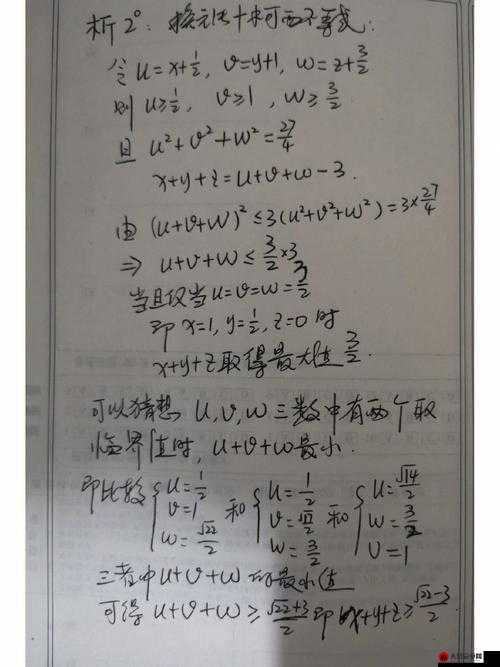 析2°: 换元法+柯西不等式.
令 u=x+1/2, v=y+1, w=z+3/2
则 u≥1/2, v≥1, w≥3/2
且 u²+v²+w²=27/4
x+y+z=u+v+w-3.
由 (u+v+w)²≤3(u²+v²+w²)=3×27/4
⇒ u+v+w≤3/2×3
当且仅当u=v=w=3/2
即 x=1, y=1/2, z=0 时
x+y+z取得最大值 3/2.
可以猜想 u,v,w三数中有两个取
临界值时, u+v+w最小.
即比较 { u=1/2 v=1 w=√22/2 和 { u=1/2 v=√17/2 w=3/2 和 { u=√14/2 w=3/2 v=1
三者中u+v+w的最小值
可得 u+v+w≥(√22+3)/2 即 x+y+z≥(√22-3)/2